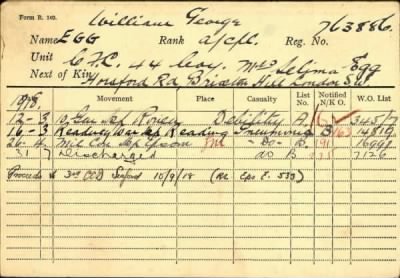 Form R. 140.
William George
Name EGG Rank A/Cpl. Reg. No. 763886.
Unit C.F.C. 44 Coy. Mrs Selina Egg
Next of Kin Horsford Rd, Brixton Hill London S.W.
1918. Movement Place Casualty List Notified N/K O. W.O. List
12-3 Gen Hosp Rouen Debility A. 3457
16-3 Reading War Hosp Reading Pneumonia B 163 14819
26-4 Mil Con Hosp Epsom -Do- B. 191 16999
Discharged do B 7126
Proceeds to 3rd CCD Seaford 10/9/18